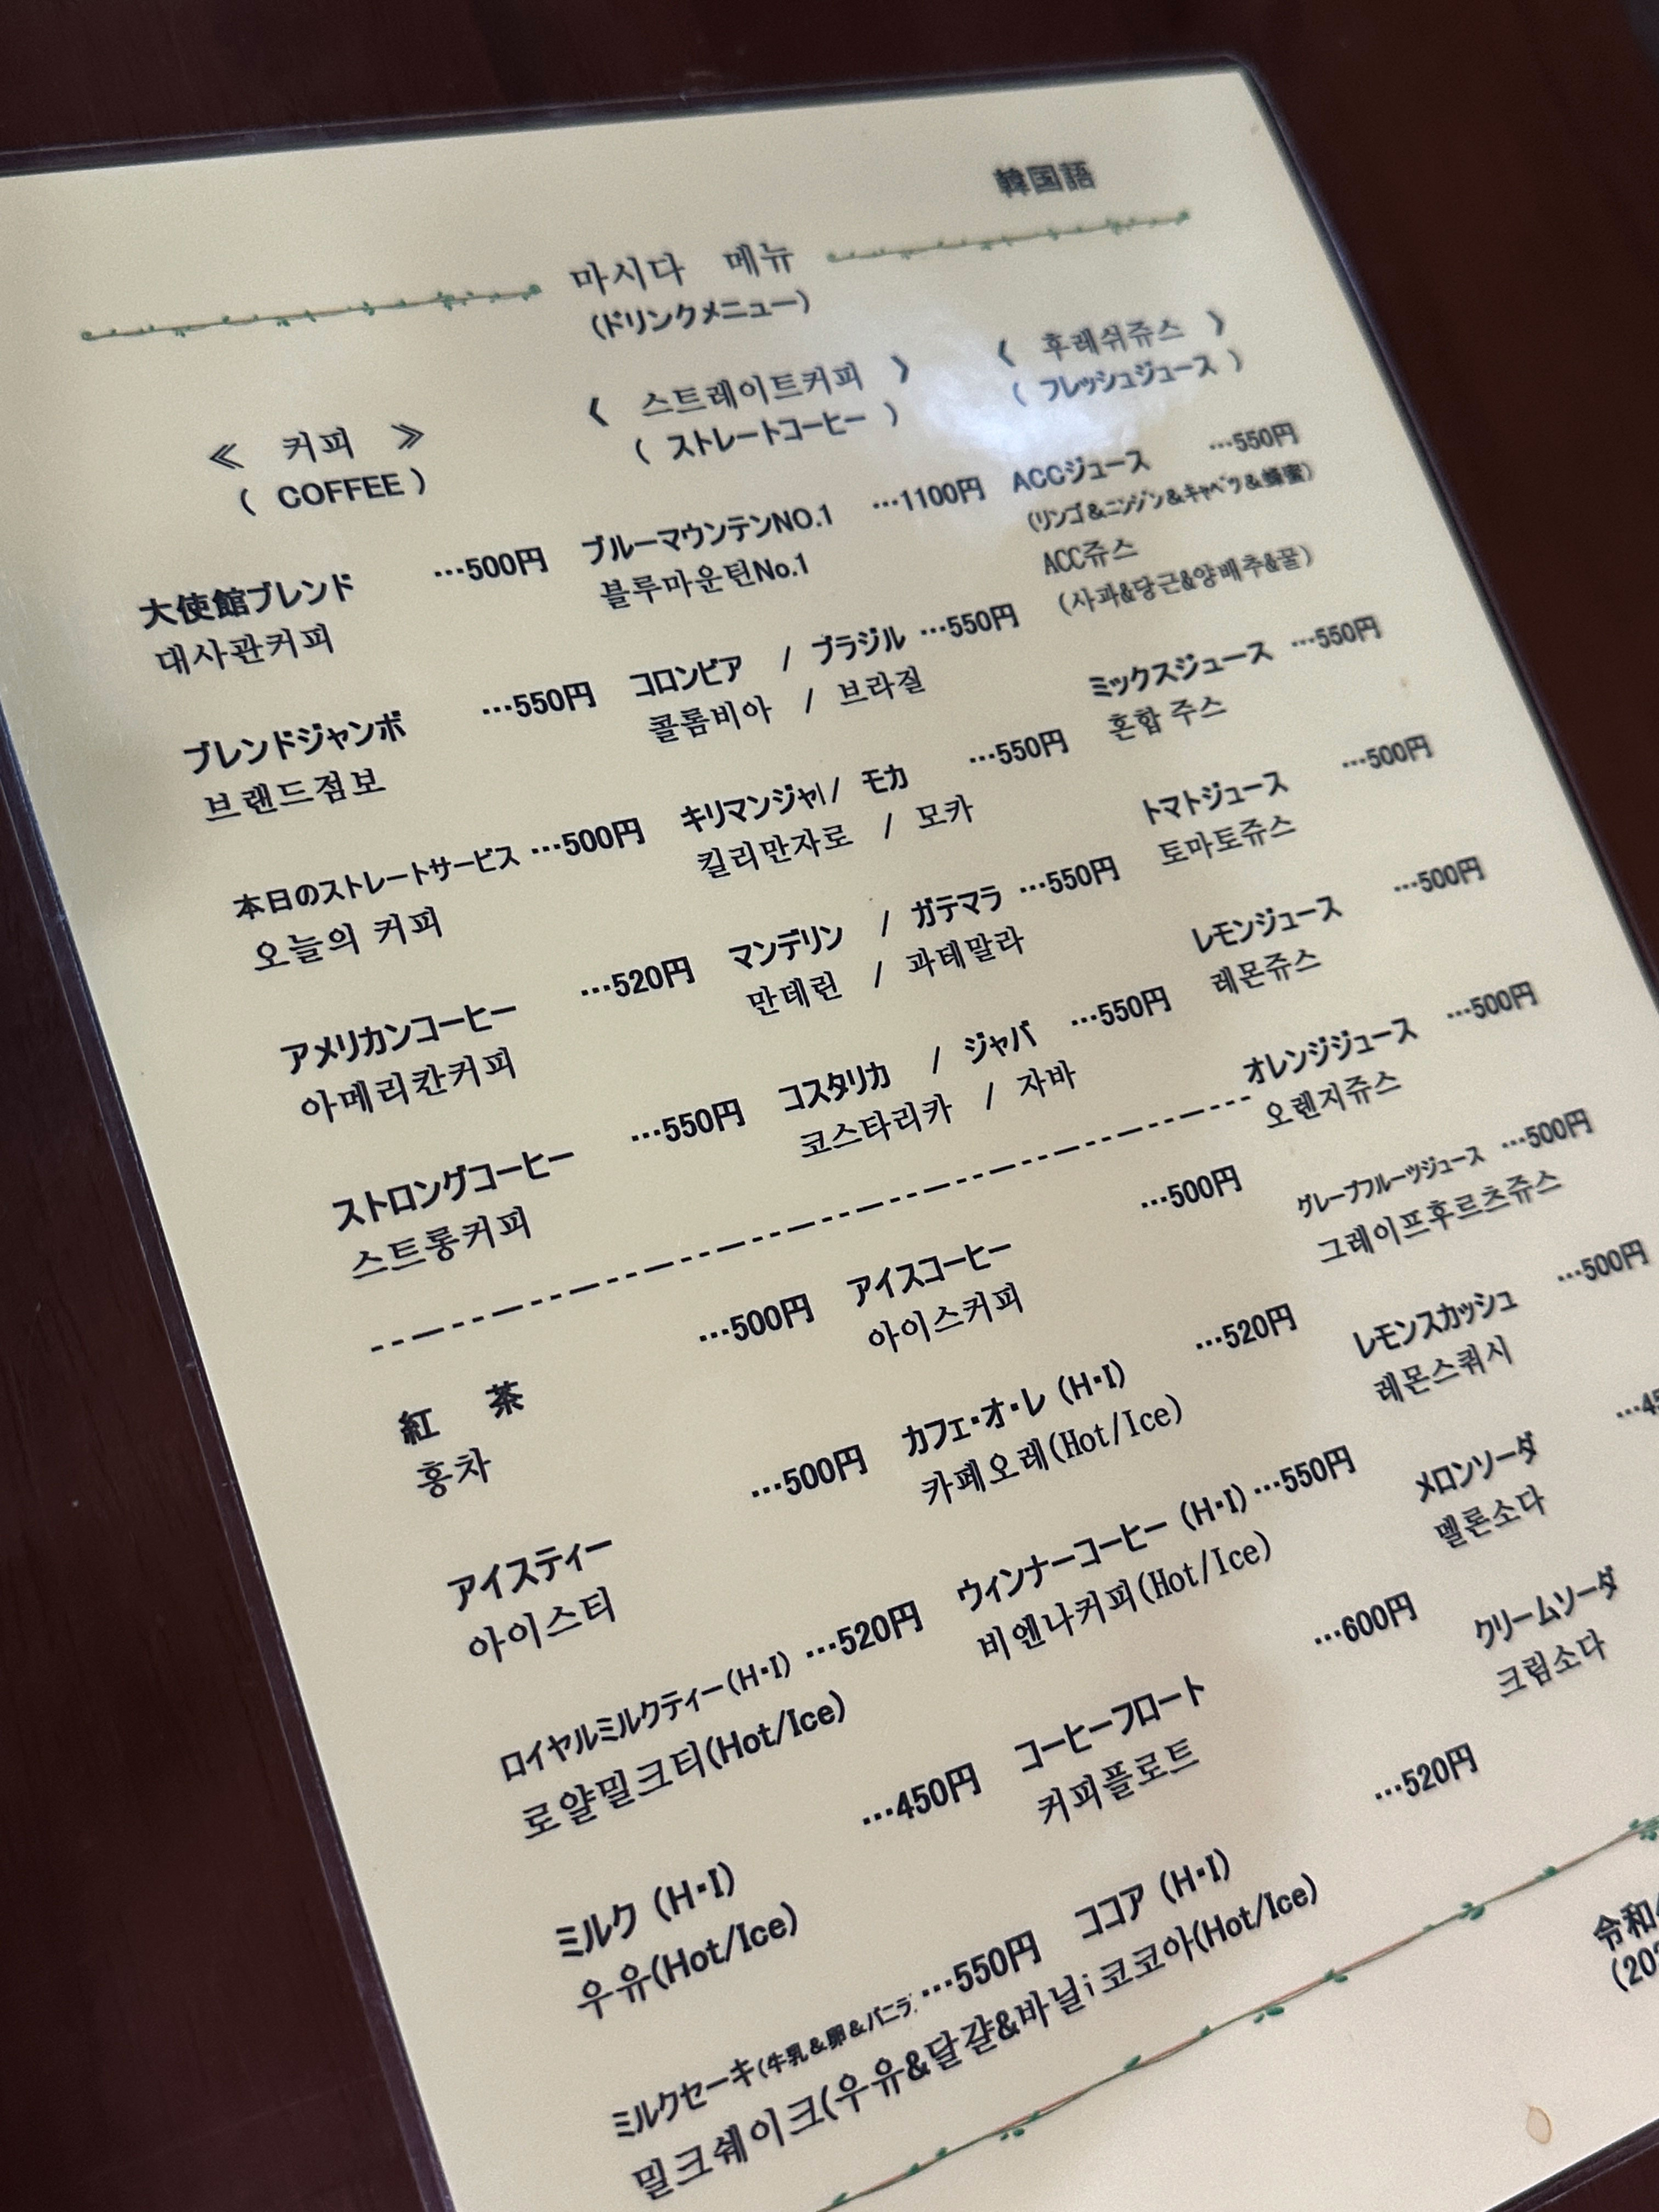 韓国語
마시다 메뉴
(ドリンクメニュー)
≪ 커피 ≫
( COFFEE )
大使館ブレンド …500円
대사관커피
ブレンドジャンボ …550円
브랜드점보
本日のストレートサービス …500円
오늘의 커피
アメリカンコーヒー …520円
아메리칸커피
ストロングコーヒー …550円
스트롱커피
《 스트레이트커피 》
( ストレートコーヒー )
ブルーマウンテンNO.1 …1100円
블루마운틴No.1
コロンビア / ブラジル …550円
콜롬비아 / 브라질
キリマンジャ/ モカ …550円
킬리만자로 / 모카
マンデリン / ガテマラ …550円
만데린 / 과테말라
コスタリカ / ジャバ …550円
코스타리카 / 자바
《 후레쉬쥬스 》
( フレッシュジュース )
ACCジュース …550円
(リンゴ&ニンジン&キャベツ&蜂蜜)
ACC쥬스
(사과&당근&양배추&꿀)
ミックスジュース …550円
혼합 주스
トマトジュース …500円
토마토쥬스
レモンジュース …500円
레몬쥬스
オレンジジュース …500円
오렌지쥬스
グレープフルーツジュース …500円
그레이프후르츠쥬스
レモンスカッシュ …500円
레몬스쿼시
メロンソーダ
멜론소다
クリームソーダ
크림소다
紅 茶 …500円
홍차
アイスティー …500円
아이스티
ロイヤルミルクティー(H・I) …520円
로얄밀크티(Hot/Ice)
ミルク (H・I) …450円
우유(Hot/Ice)
ミルクセーキ(牛乳&卵&バニラ …550円
밀크쉐이크(우유&달걀&바닐
アイスコーヒー …500円
아이스커피
カフェ・オ・レ (H・I) …520円
카페오레(Hot/Ice)
ウィンナーコーヒー (H・I) …550円
비엔나커피(Hot/Ice)
コーヒーフロート …600円
커피플로트
ココア (H・I) …520円
코코아(Hot/Ice)
令和